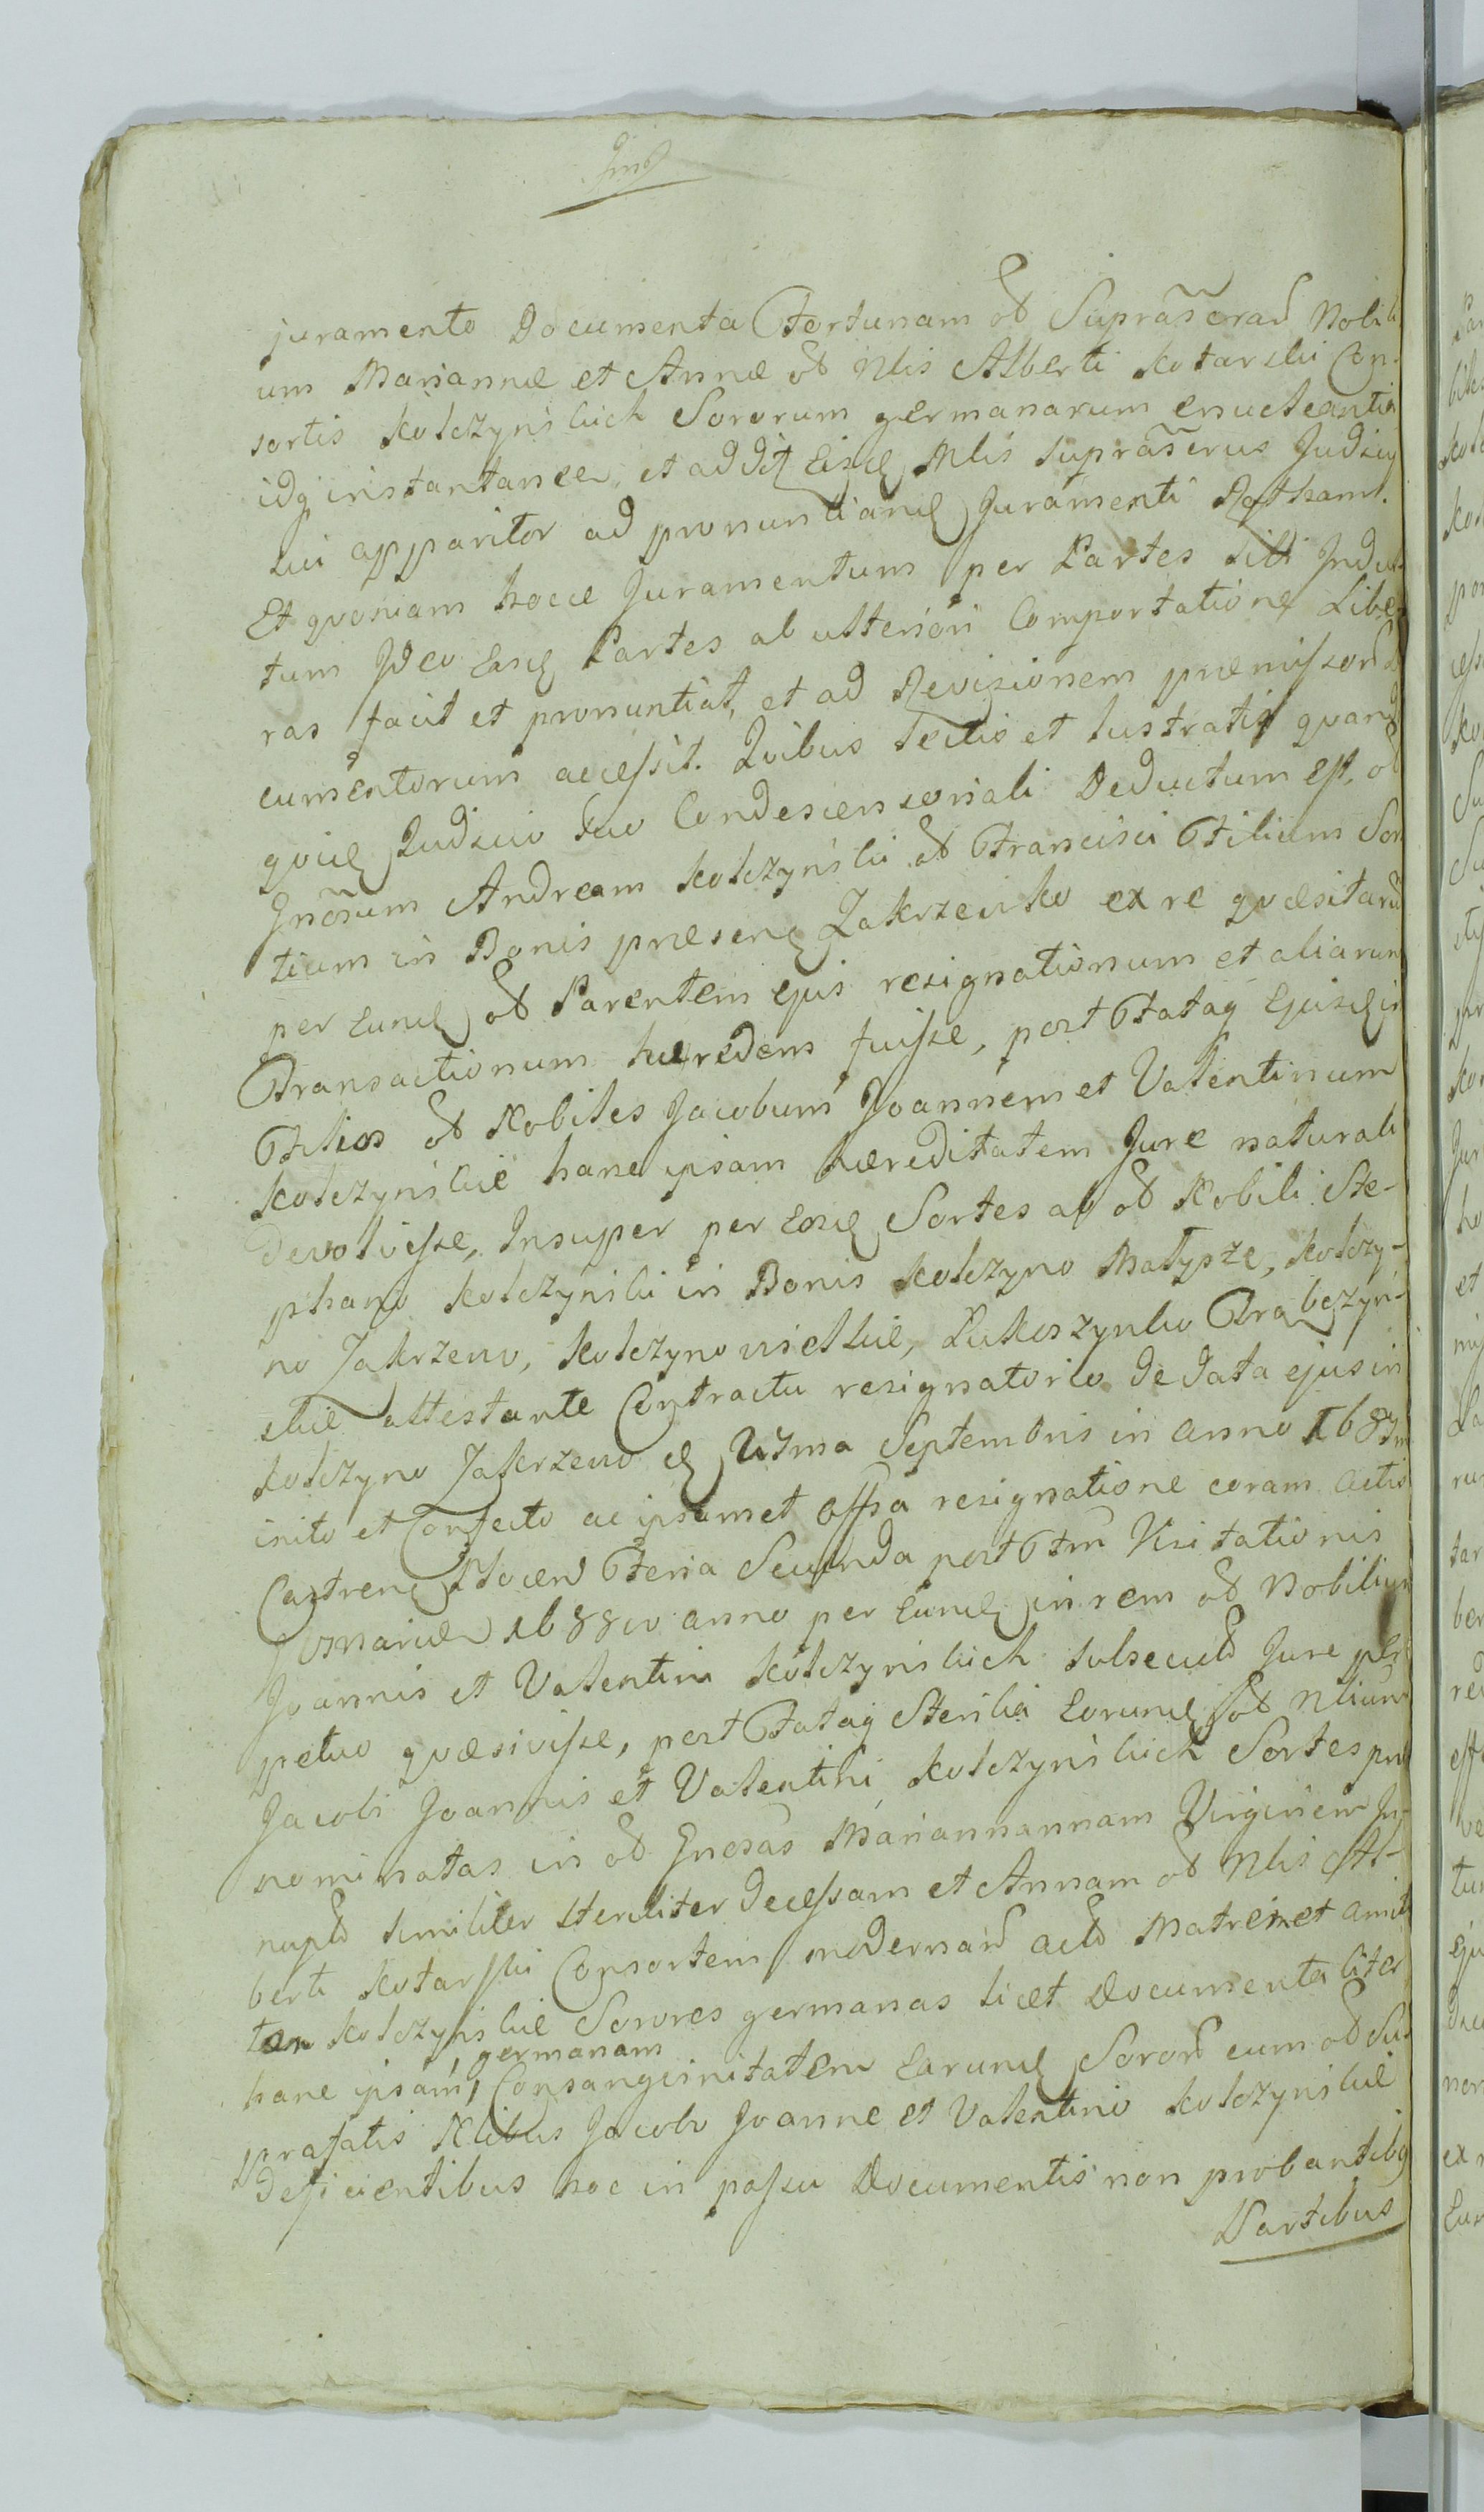 juramento Documenta Fortunam od Supranerad Nobili
um Mariannæ et Annæ od Nlis Alberti Kotarski Con-
sortis Kołczynskich Sororum germanarum enucleantia
idq instantaneæ, et addit Eisd Nlis supranerus Judicy
sui apparitor ad pronuntiand Juramenti Rotham.
Et quoniam hocce Juramentum per Partes sibi Indul
tum Ideo Easd Partes ab ulteriori Comportatione Libe
ras facit et pronuntiat, et ad Revizionem præmissord Do
cumentorum accessit. Quibus lectis et lustratis quand
quid Judicio suo Condescensoriali Deductum est, od
Gnosum Andream Kołczynski od Francisci Filium Sor
tium in Bonis præsend Zakrzewko ex re quæsitaru
per Eund od Parentem ejus resignationum et aliarum
Transactionum hæredem fuisse, post Fataq Ejusd in
Filios od Nobiles Jacobum Joannem et Valentinum
Kołczynskie hanc ipsam hæreditatem Jure naturali
devolvisse, Insuper per Eosd Sortes ab od Nobili Ste-
phano Kołczynski in Bonis Kołczyno Matysze, Kołczy-
no Zakrzewo, Kołczyno wielkie, Lukoszynko Brabczyn-
skie attestante Contractu resignatorio de data ejus in
Kołczyno Zakrzewo d 27ma Septembris in anno 1687m
inito et Confecto ac ipsamet offa resignatione coram Actis
Castrend Plocen Feria Secunda post Ftm Visitationis
1688vo anno per Eund in rem od Nobilium
Joannis et Valentini Kołczynskich subsecud Jure per
petuo quæsivisse, post Fataq Sterilia Eorund od Nlium
Jacobi Joannis et Valentini Kołczynskich Sortes præ
nominatas in od Gnosas Mariannannam Virginem In-
nupd similiter steriliter decessam et Annam od Nlis Al-
berti Kotarski Consortem modernard acto Matrem et amit
tam Kołczynskie Sorores germanas licet Documentaliter
germanam
hanc ipsam, Consanginitatem Earund Sorord cum od Su
prafatis Nlibus Jacobo Joanne et Valentino Kołczynskie
deficientibus hoc in passu Documentis non probantibq
Partibus